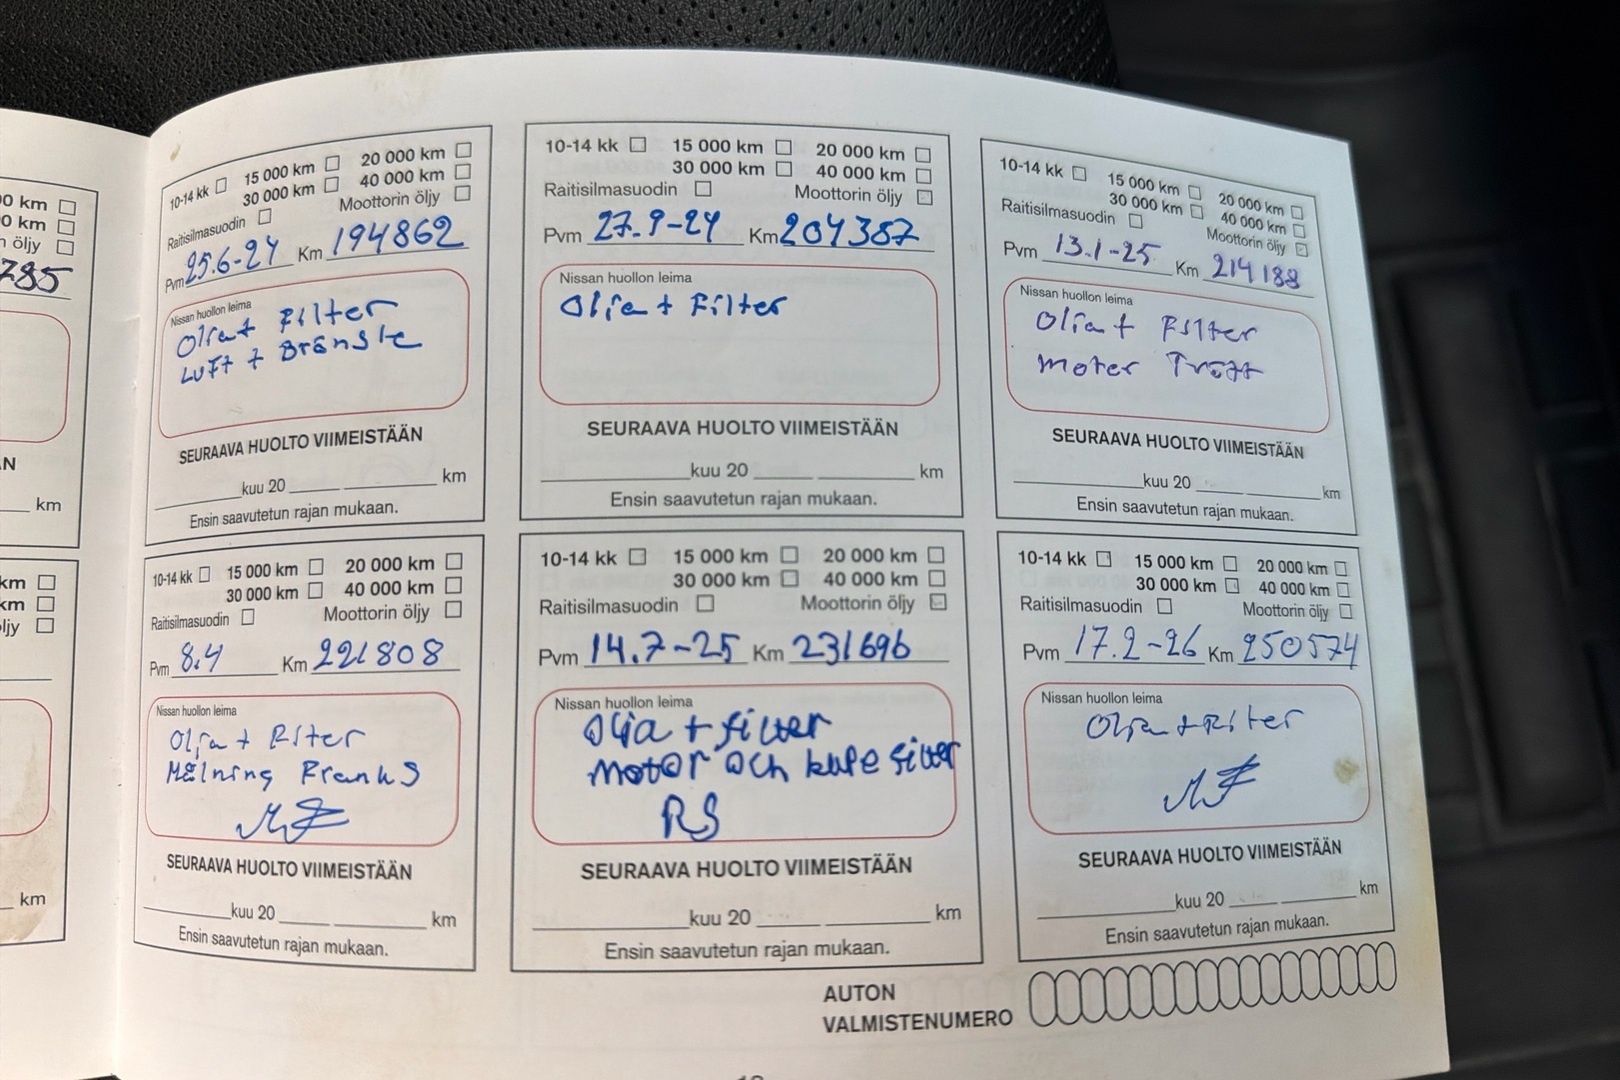 00 km
0 km
n öljy
785
N
km
km
km
ljy
km
10-14 kk 15 000 km 20 000 km
30 000 km 40 000 km
Raitisilmasuodin Moottorin öljy
Pvm 25.6-24 Km 194862
Nissan huollon leima
Olja+ Filter
Luft + Bränsle
SEURAAVA HUOLTO VIIMEISTÄÄN
kuu 20 km
Ensin saavutetun rajan mukaan.
10-14 kk 15 000 km 20 000 km
30 000 km 40 000 km
Raitisilmasuodin Moottorin öljy
Pvm 27.9-24 Km 204387
Nissan huollon leima
Olja + Filter
SEURAAVA HUOLTO VIIMEISTÄÄN
kuu 20 km
Ensin saavutetun rajan mukaan.
10-14 kk 15 000 km 20 000 km
30 000 km 40 000 km
Raitisilmasuodin Moottorin öljy
Pvm 13.1-25 Km 214188
Nissan huollon leima
Olja + Filter
SEURAAVA HUOLTO VIIMEISTÄÄN
kuu 20 km
Ensin saavutetun rajan mukaan.
10-14 kk 15 000 km 20 000 km
30 000 km 40 000 km
Raitisilmasuodin Moottorin öljy
Pvm 8.4 Km 221808
Nissan huollon leima
Olja + Filter
Målning Framhs
SEURAAVA HUOLTO VIIMEISTÄÄN
kuu 20 km
Ensin saavutetun rajan mukaan.
10-14 kk 15 000 km 20 000 km
30 000 km 40 000 km
Raitisilmasuodin Moottorin öljy
Pvm 14.7-25 Km 231696
Nissan huollon leima
Olja + filter
motor och kupe filter
RS
SEURAAVA HUOLTO VIIMEISTÄÄN
kuu 20 km
Ensin saavutetun rajan mukaan.
10-14 kk 15 000 km 20 000 km
30 000 km 40 000 km
Raitisilmasuodin Moottorin öljy
Pvm 17.2-26 Km 250574
Nissan huollon leima
Olja + Filter
SEURAAVA HUOLTO VIIMEISTÄÄN
kuu 20 km
Ensin saavutetun rajan mukaan.
AUTON
VALMISTENUMERO